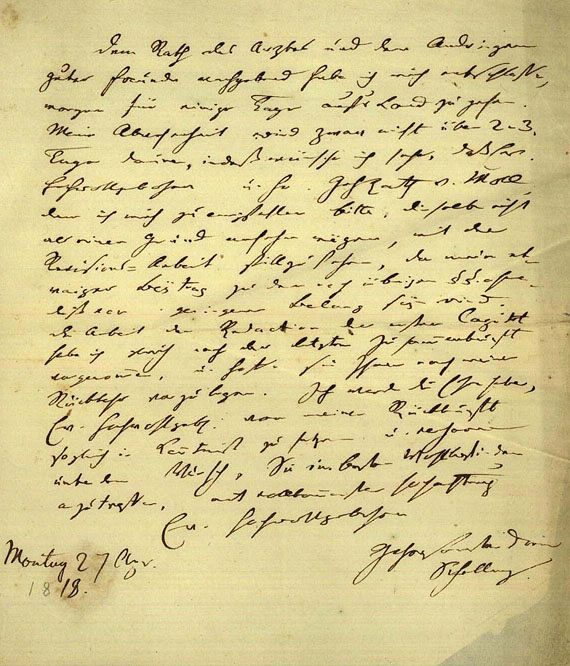 Dem Rath des Arztes und dem Andringen
guter Freunde nachgebend habe ich mich entschlossen,
morgen für einige Tage auf's Land zu gehen.
Meine Abwesenheit wird zwar nicht über 2-3
Tage dauern, indeß wünsche ich sehr, daß
Hochwohlgeboren u. Hr. Geh. Rath v. Moll,
dem ich mich zu empfehlen bitte, dieselbe nicht
als einen Grund ansehen mögen, mit der
Revisions-Arbeit stillzustehen, da mein
Beytrag zu den noch übrigen §§
geringem Belang seyn wird.
Die Arbeit der Redaction der ersten Capitel
habe ich gleich nach der letzten Zusammenkunft
vorgenommen, u. hoffe sie Ihnen nach meiner
Rückkehr vorzulegen. Ich werde die Ehre haben,
Ew. Hochwohlgeb. von meiner Rückkunft
sogleich in Kenntniß zu setzen u.
unter dem Wunsch, Sie im besten Wohlseyn
anzutreffen, mit vollkommenster Hochachtung
Ew. Hochwohlgeboren
Montag 27 Apr.
1818.
gehorsamster Diener
Schelling.